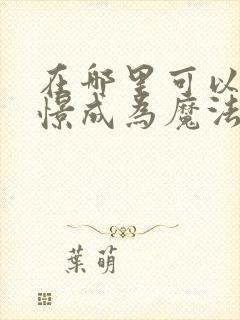 在哪里可以
憬成为魔法
葉萌